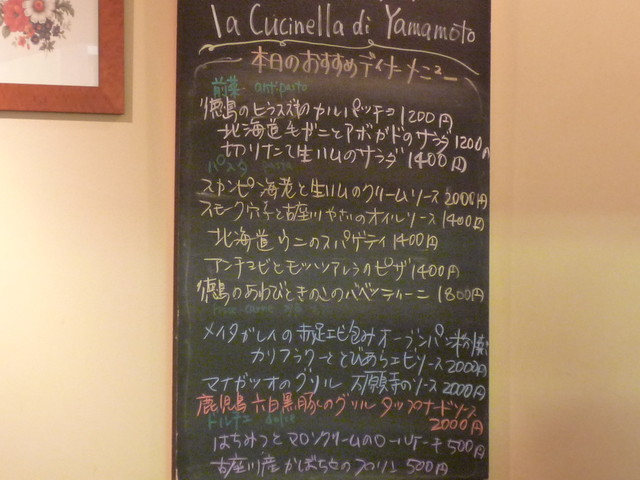 la Cucinella di Yamamoto
本日のおすすめディナーメニュー
前菜 antipasto
徳島のヒラスズキのカルパッチョ 1200円
北海道毛ガニとアボガドのサラダ 1200円
切りたて生ハムのサラダ 1400円
パスタ pasta
スカンピ海老と生ハムのクリームソース 2000円
スモーク穴子と古座川やさいのオイルソース 1400円
北海道ウニのスパゲティ 1400円
アンチョビとモッツァレラのピザ 1400円
徳島のあわびときのこのバベッティーニ 1800円
メイタガレイの赤足エビ包みオーブンパン粉焼
カリフラワーととびあらエビソース 2000円
マナガツオのグリル 万願寺のソース 2000円
鹿児島六白黒豚のグリル タップナードソース
2000円
ドルチェ dolce
はちみつとマロンクリームのロールケーキ 500円
古座川産かぼちゃのプリン 500円